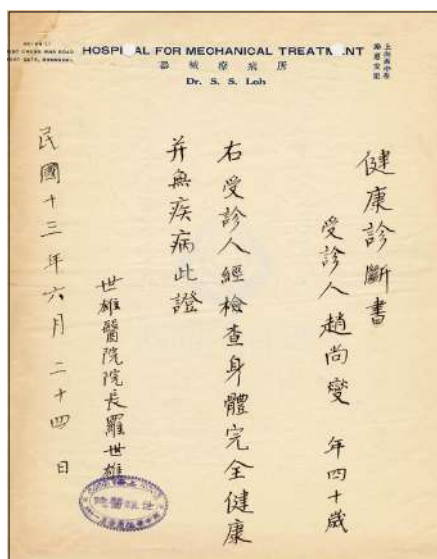 HOSPITAL FOR MECHANICAL TREATMENT
器械療病所
Dr. S. S. Loh
健康診斷書
受診人趙尚燮 年四十歲
右受診人經檢查身體完全健康
并無疾病此證
世雄醫院院長羅世雄
民國十三年六月二十四日